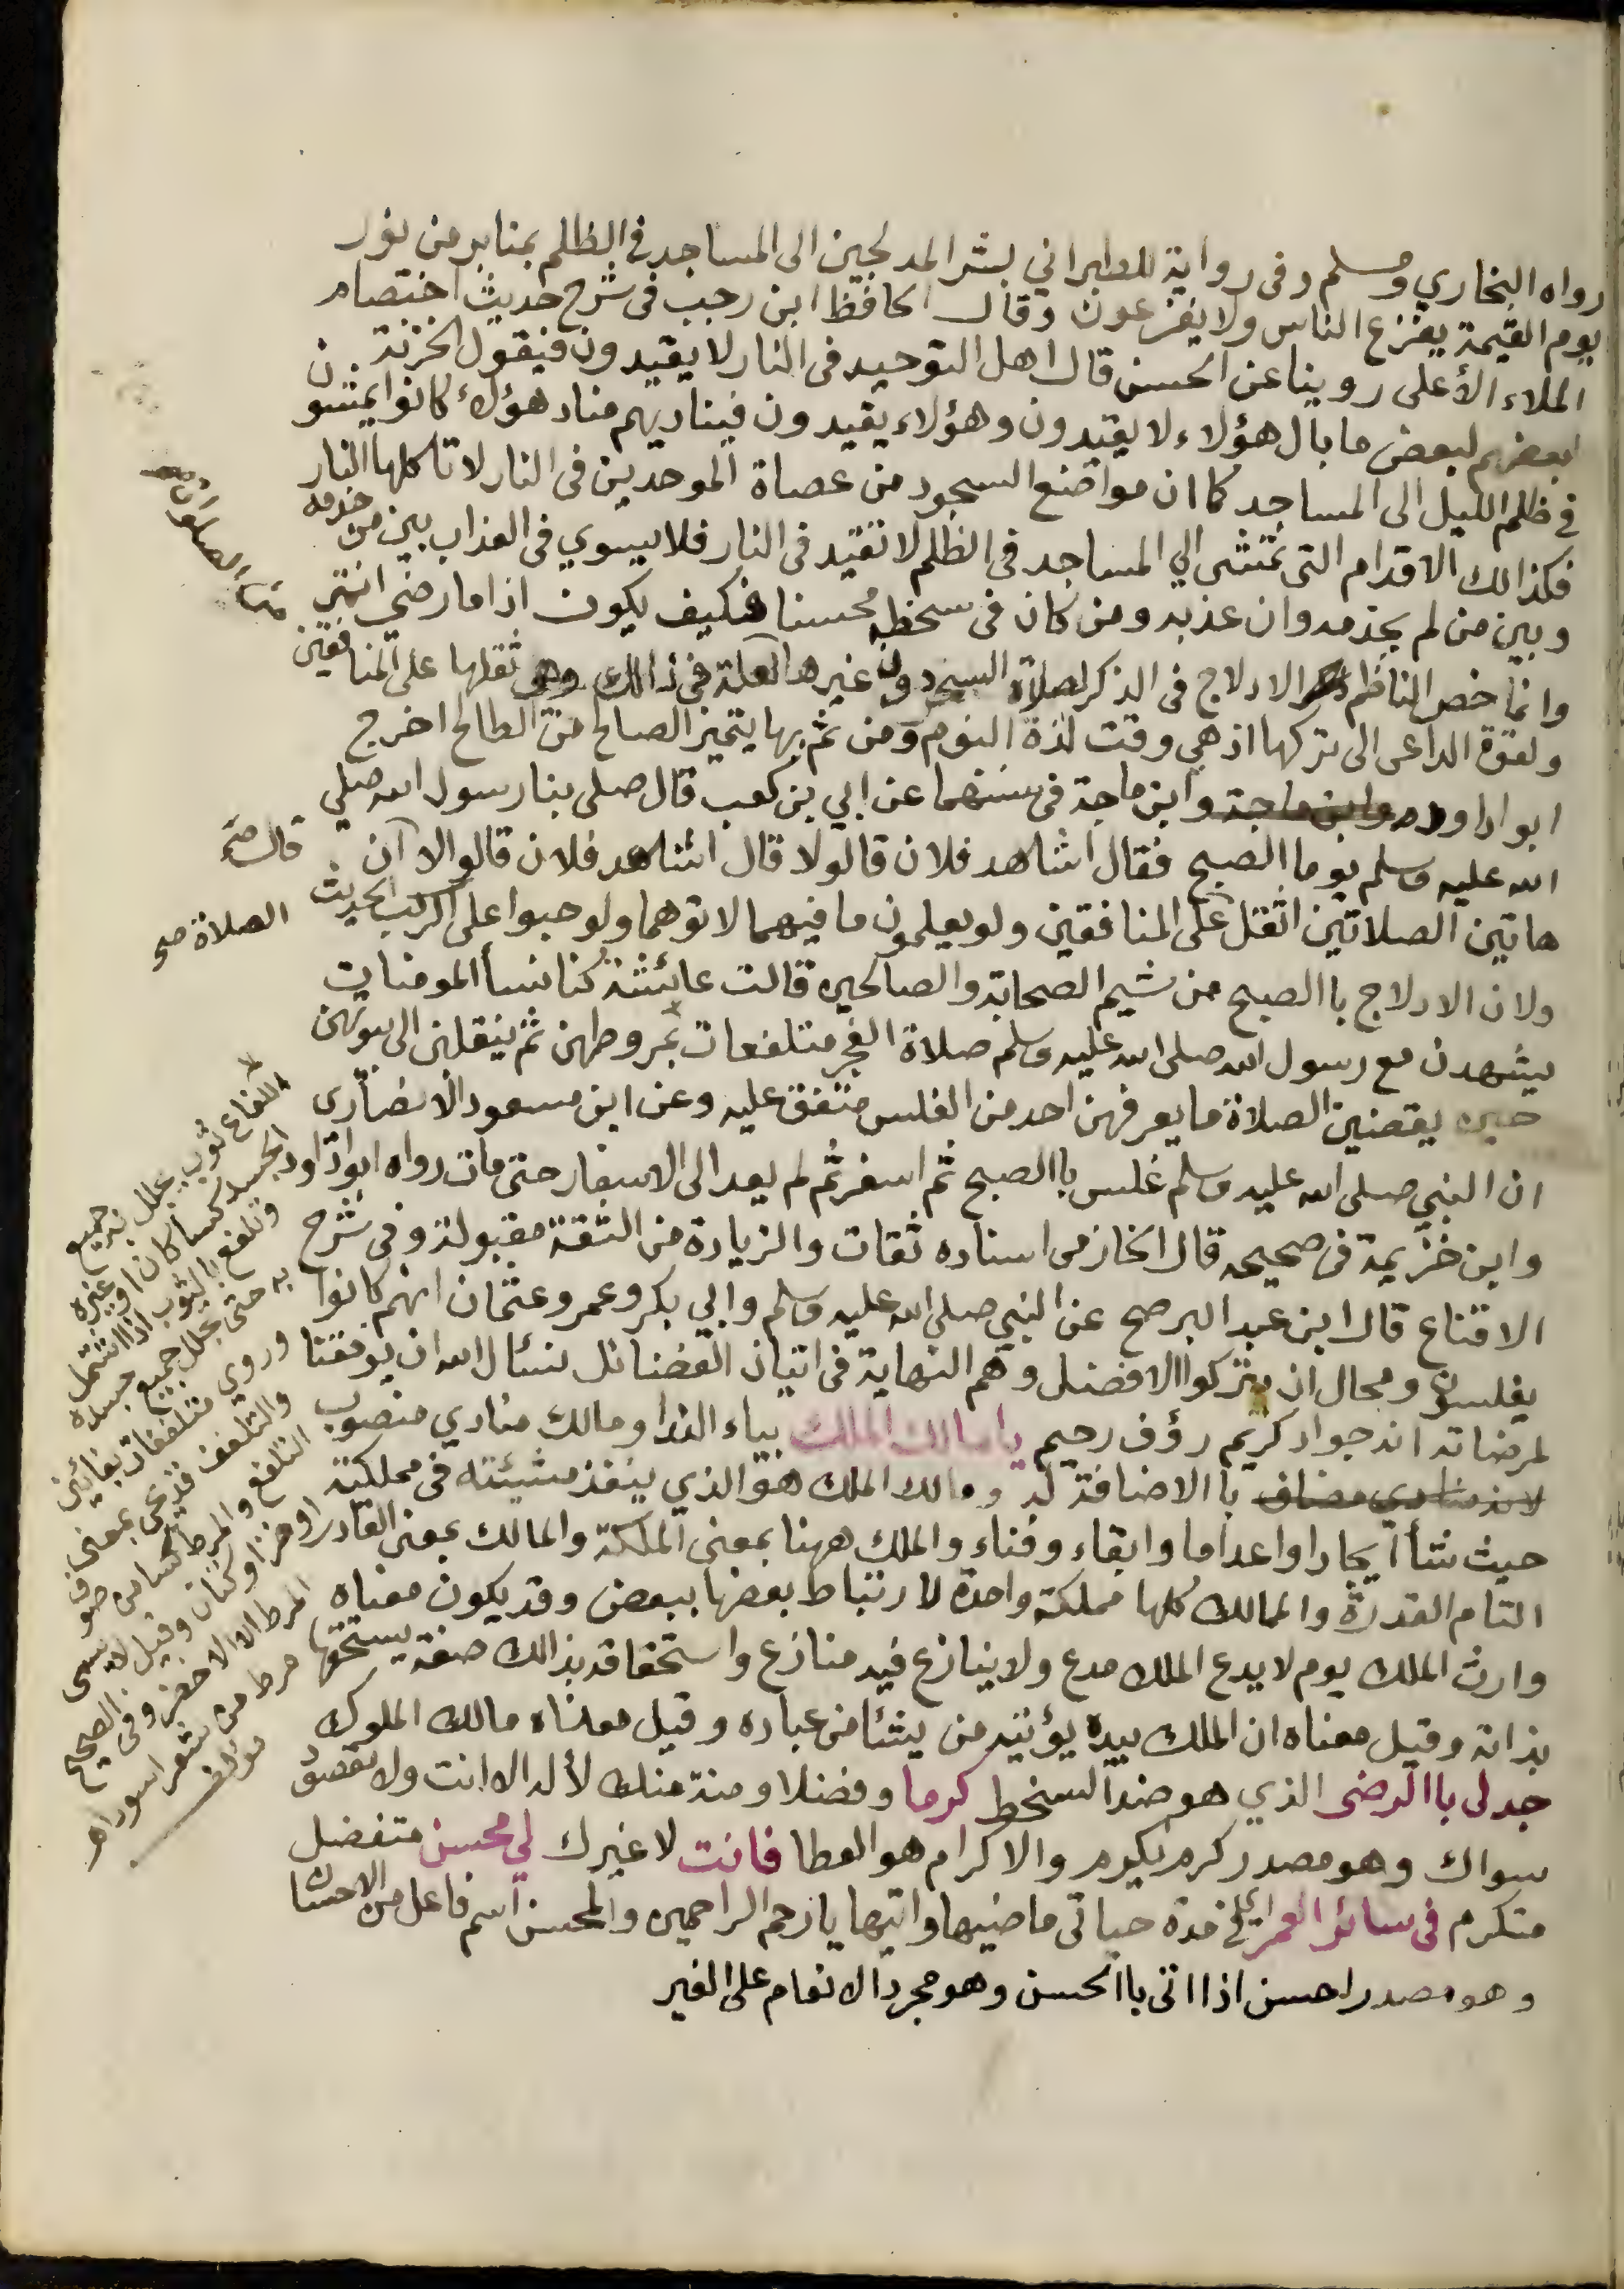 رواه البخاري ومسلم وفى رواية للطبراني بشر المدلجين الى المساجد فى الظلم بمنابر من نور
يوم القيمة يفزع الناس ولا يفزعون وقال الحافظ ابن رجب فى شرح حديث اختصام
الملاء الأعلى روينا عن الحسن قال اهل التوحيد فى النار لا يقيدون فيقول الخزنة
بعضهم لبعض ما بال هؤلاء لا يقيدون وهؤلاء يقيدون فيناديهم مناد هؤلاء كانوا يمشون
في ظلم الليل الى المساجد كما ان مواضع السجود من عصاة الموحدين فى النار لا تاكلها النار
فكذالك الاقدام التى تمشى الي المساجد فى الظلم لا تقيد فى النار فلا يسوي فى العذاب بين من خدمه
وبين من لم يخدمه وان عذبه ومن كان فى سخطه محسنا فكيف يكون اذا ما رضي انتهى
وانما خص الناظم الادلاج فى الذكر لصلاة السحر دون غيرها لعلة فى ذالك وهى ثقلها على المنافقين
ولقوة الداعى الى تركها اذ هي وقت لذة النوم ومن ثم بها يتميز الصالح من الطالح اخرج
ابو اداود وابن ماجة وابن ماجة فى سننهما عن ابي بن كعب قال صلى بنا رسول الله صلي
الله عليه وسلم يوما الصبح فقال اشاهد فلان قالو لا قال اشاهد فلان قالو الا ان
هاتين الصلاتين اثقل على المنافقين ولو يعلمون ما فيهما لاتوهما ولو حبوا على الركب الحديث
ولان الادلاج باالصبح من شيم الصحابة والصالحين قالت عائشة كنا نسأ المومنات
يشهدن مع رسول الله صلى الله عليه وسلم صلاة الفجر متلفعات بمروطهن ثم ينقلبن الى بيوتهن
حين يقضين الصلاة ما يعرفهن احد من الغلس متفق عليه وعن ابن مسعود الانصاري
ان النبي صلى الله عليه وسلم غلس باالصبح ثم اسفر ثم لم يعد الى الاسفار حتى مات رواه ابوداود
وابن خزيمة فى صحيحه قال الخازمى اسناده ثقات والزيادة من الثقة مقبولة وفى شرح
الاقناع قال ابن عبد البر صح عن النبي صلى الله عليه وسلم وابي بكر وعمر وعثمان انهم كانوا
يغلسون ومحال ان يتركوا الافضل وهم النهاية فى اتيان الفضائل نسئال الله ان يوفقنا
لمرضاته انه جواد كريم رؤف رحيم يا مالك الملك بياء الندا ومالك منادي منصوب
لانه منادي مضاف باالاضافة له ومالك الملك هو الذي ينفذ مشيئته فى مملكته
حيث شأ ايجادا واعداما وابقاء وفناء والملك ههنا بمعنى المملكة والمالك بمعنى القادر
التام القدرة والممالك كلها مملكة واحدة لارتباط بعضها ببعض وقد يكون معناه
وارث الملك يوم لا يدع الملك مدع ولا ينازع فيه منازع واستحقاقه بذالك صفة يستحقها
بذاته وقيل معناه ان الملك بيده يؤتيه من يشأ من عباده وقيل معناه مالك الملوك
جد لى باالرضى الذي هو ضد السخط كرما وفضلا ومنة منك لأله الا انت ولا نقصود
سواك وهو مصدر كرم يكرم والاكرام هو العطا فانت لا غيرك لي محسن متفضل
متكرم فى سائر العمر اي فى مدة حياتى ماضيها واتيها يا ارحم الراحمين والمحسن اسم فاعل من الاحسان
وهو مصدر احسن اذا اتى باالحسن وهو مجرد الانعام على الغير
من الصلوات صح
قال صح
الصلاة صح
اللفاع ثوب يجلل به جميع
الجسد كسا كان او غيره
وتلفع بالثوب اذا اشتمل
به حتى يجلل جميع جسده
وروي متلففات بفائين
والتلفف قد يجى بمعنى
التلفع والمرط كسا من صوف
او خز او كتان وقيل لا يسمى
المرط الا الاخضر وفى الصحيح
مرط من شعر اسود اهـ
مؤلف